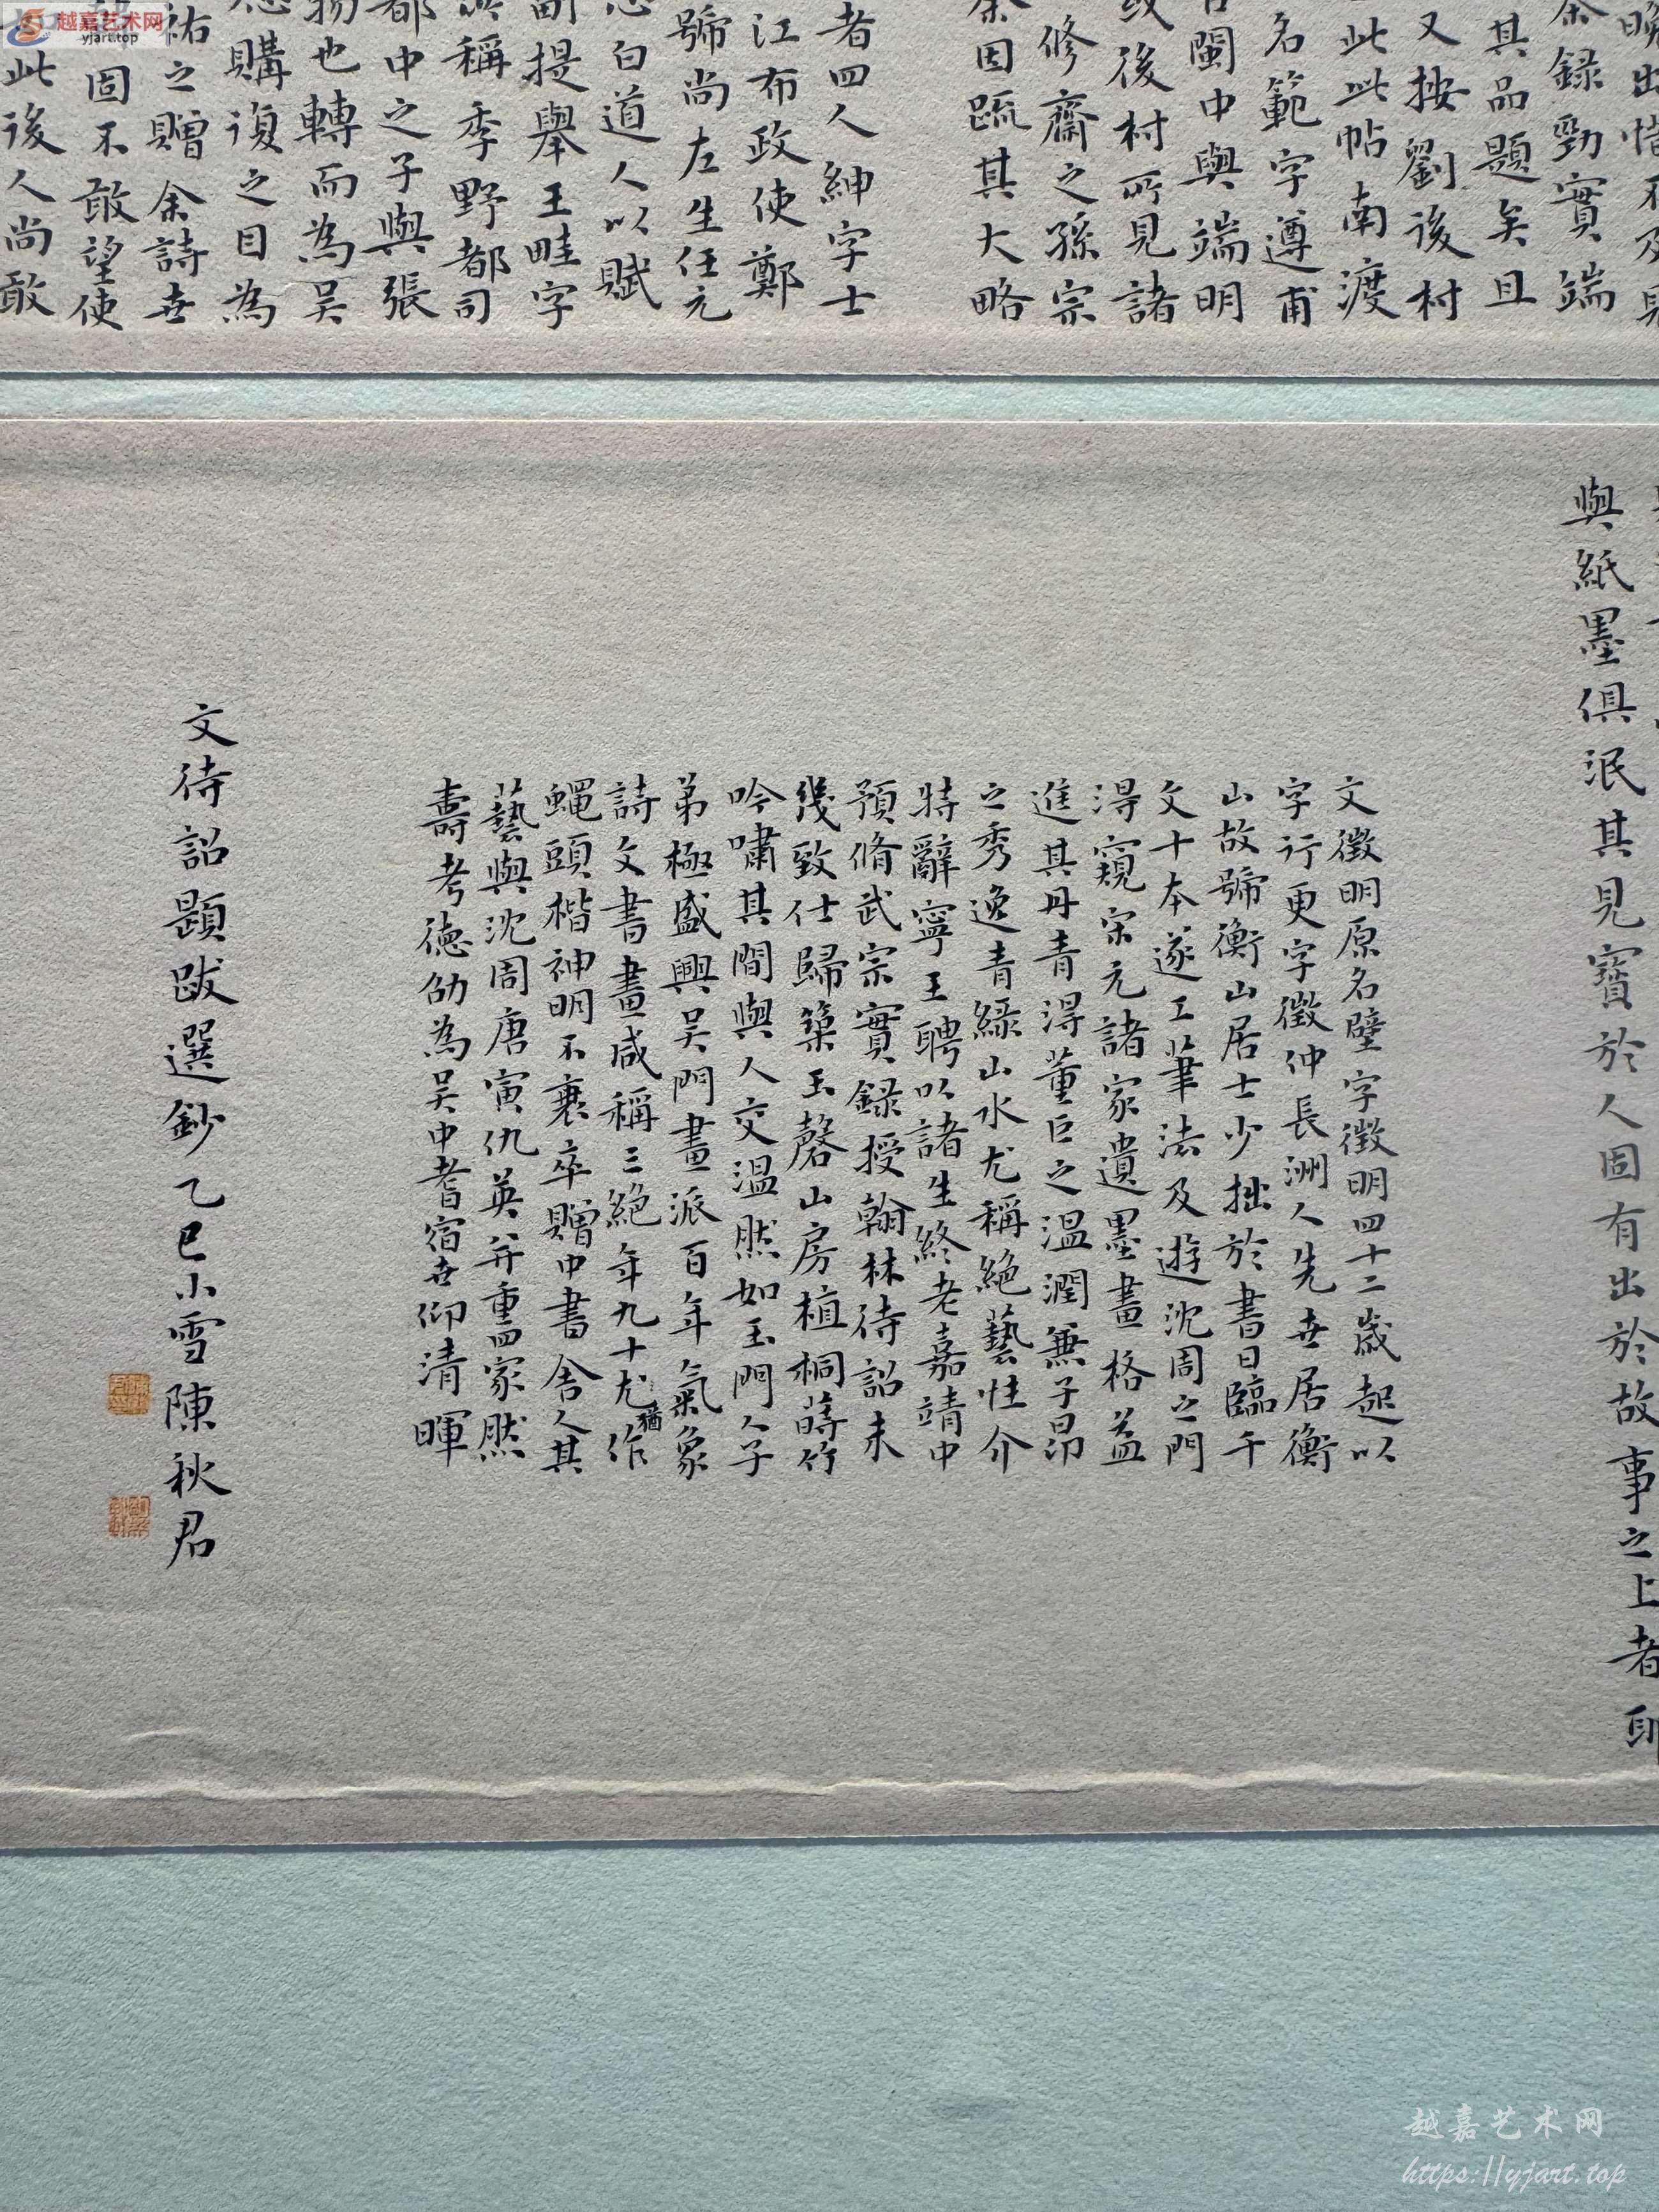 越嘉艺术网
yjart.top
晚出惜不及見
余錄勁實端
其品題矣且
又按劉後村
此此帖南渡
名範字遵甫
閩中與端明
後村所見諸
修齋之孫宗
余因疏其大略
者四人紳字士
江布政使鄭
號尚左生任元
白道人以賦
副提舉王畦字
稱季野都司
都中之子與張
物也轉而為吴
購復之目為
祐之贈余詩世
固不敢望使
此後人尚敢
與紙墨俱泯其見寶於人固有出於故事之上者
文徵明原名壁字徵明四十二歲起以
字行更字徵仲長洲人先世居衡
山故號衡山居士少拙於書日臨千
文十本遂工筆法及遊沈周之門
得窺宋元諸家遺墨畫格益
進其丹青得董巨之温潤兼子昂
之秀逸青綠山水尤稱絕藝性介
特辭寧王聘以諸生終老嘉靖中
預脩武宗實錄授翰林待詔未
幾致仕歸築玉磬山房植桐蒔竹
吟嘯其間與人交温然如玉門人子
弟極盛興吴門畫派百年氣象
詩文書畫咸稱三絕年九十尤猶作
蠅頭楷神明不衰卒贈中書舍人其
藝與沈周唐寅仇英并重四家然
壽考德劭為吴中耆宿世仰清暉
文待詔題跋選鈔乙巳小雪陳秋君
越嘉艺术网
https://yjart.top